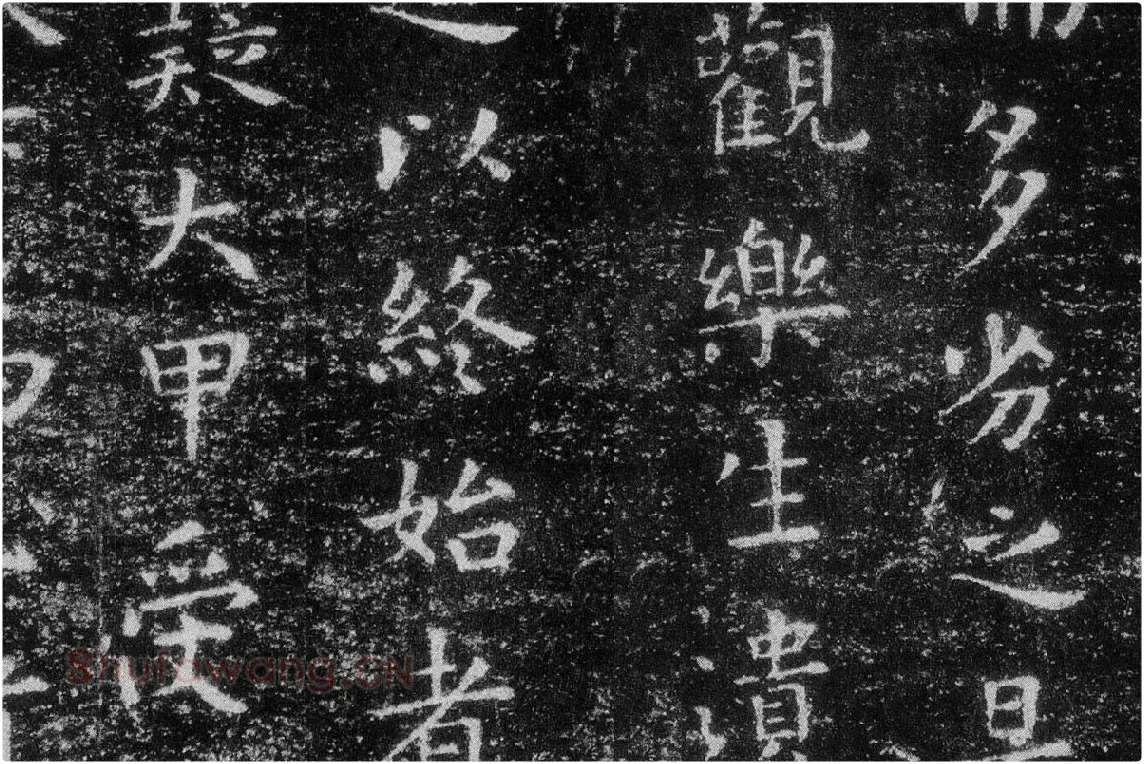 多劣之是
觀樂生遺
以終始者
疑大甲受
Shufawang.CN